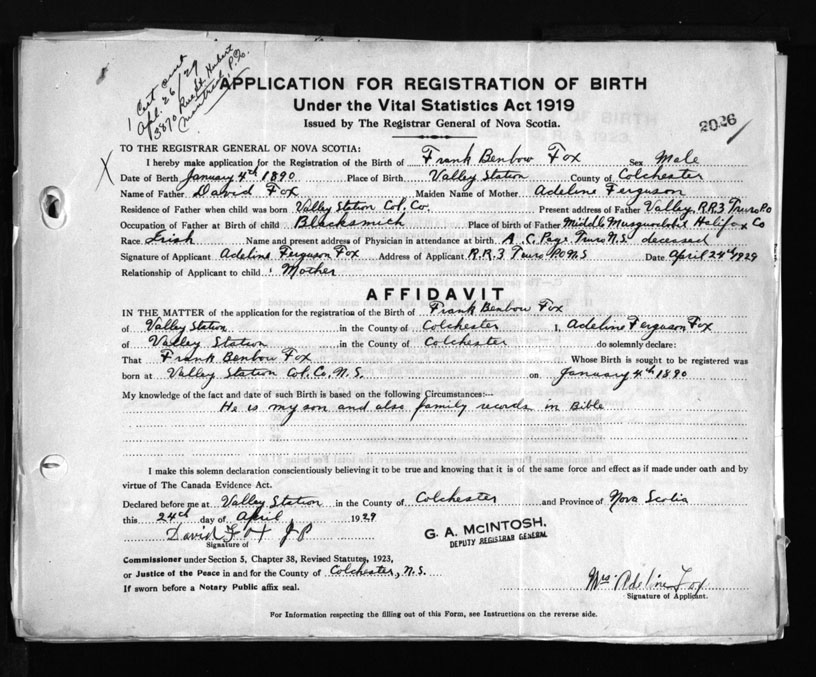 1 Cert sent
Apl. 26/29
3870 St. Hubert
Montreal P.Q.
APPLICATION FOR REGISTRATION OF BIRTH
Under the Vital Statistics Act 1919
Issued by The Registrar General of Nova Scotia.
2026
TO THE REGISTRAR GENERAL OF NOVA SCOTIA:
I hereby make application for the Registration of the Birth of Frank Benbow Fox Sex Male
Date of Birth January 4th 1890 Place of Birth Valley Station County of Colchester
Name of Father David Fox Maiden Name of Mother Adeline Ferguson
Residence of Father when child was born Valley Station Col. Co. Present address of Father Valley, R.R.3 Truro P.O
Occupation of Father at Birth of child Blacksmich Place of birth of Father Middle Musquodobit Halifax Co
Race Irish Name and present address of Physician in attendance at birth A. C. Page Truro N.S. decessed
Signature of Applicant Adeline Ferguson Fox Address of Applicant R.R.3 Truro P.O N.S Date April 24th 1929
Relationship of Applicant to child Mother
AFFIDAVIT
IN THE MATTER of the application for the registration of the Birth of Frank Benbow Fox
of Valley Station in the County of Colchester I, Adeline Ferguson Fox
of Valley Station in the County of Colchester do solemnly declare:
That Frank Benbow Fox Whose Birth is sought to be registered was
born at Valley Station Col. Co. N.S. on January 4th 1890
My knowledge of the fact and date of such Birth is based on the following Circumstances:—
He is my son and also family records in Bible
I make this solemn declaration conscientiously believing it to be true and knowing that it is of the same force and effect as if made under oath and by
virtue of The Canada Evidence Act.
Declared before me at Valley Station in the County of Colchester and Province of Nova Scotia
this 24th day of April 1929
David Fox J P
Signature of
G. A. McINTOSH,
DEPUTY REGISTRAR GENERAL
Commissioner under Section 5, Chapter 38, Revised Statutes, 1923,
or Justice of the Peace in and for the County of Colchester, N.S.
If sworn before a Notary Public affix seal.
Mrs. Adeline Fox
Signature of Applicant.
For Information respecting the filling out of this Form, see Instructions on the reverse side.